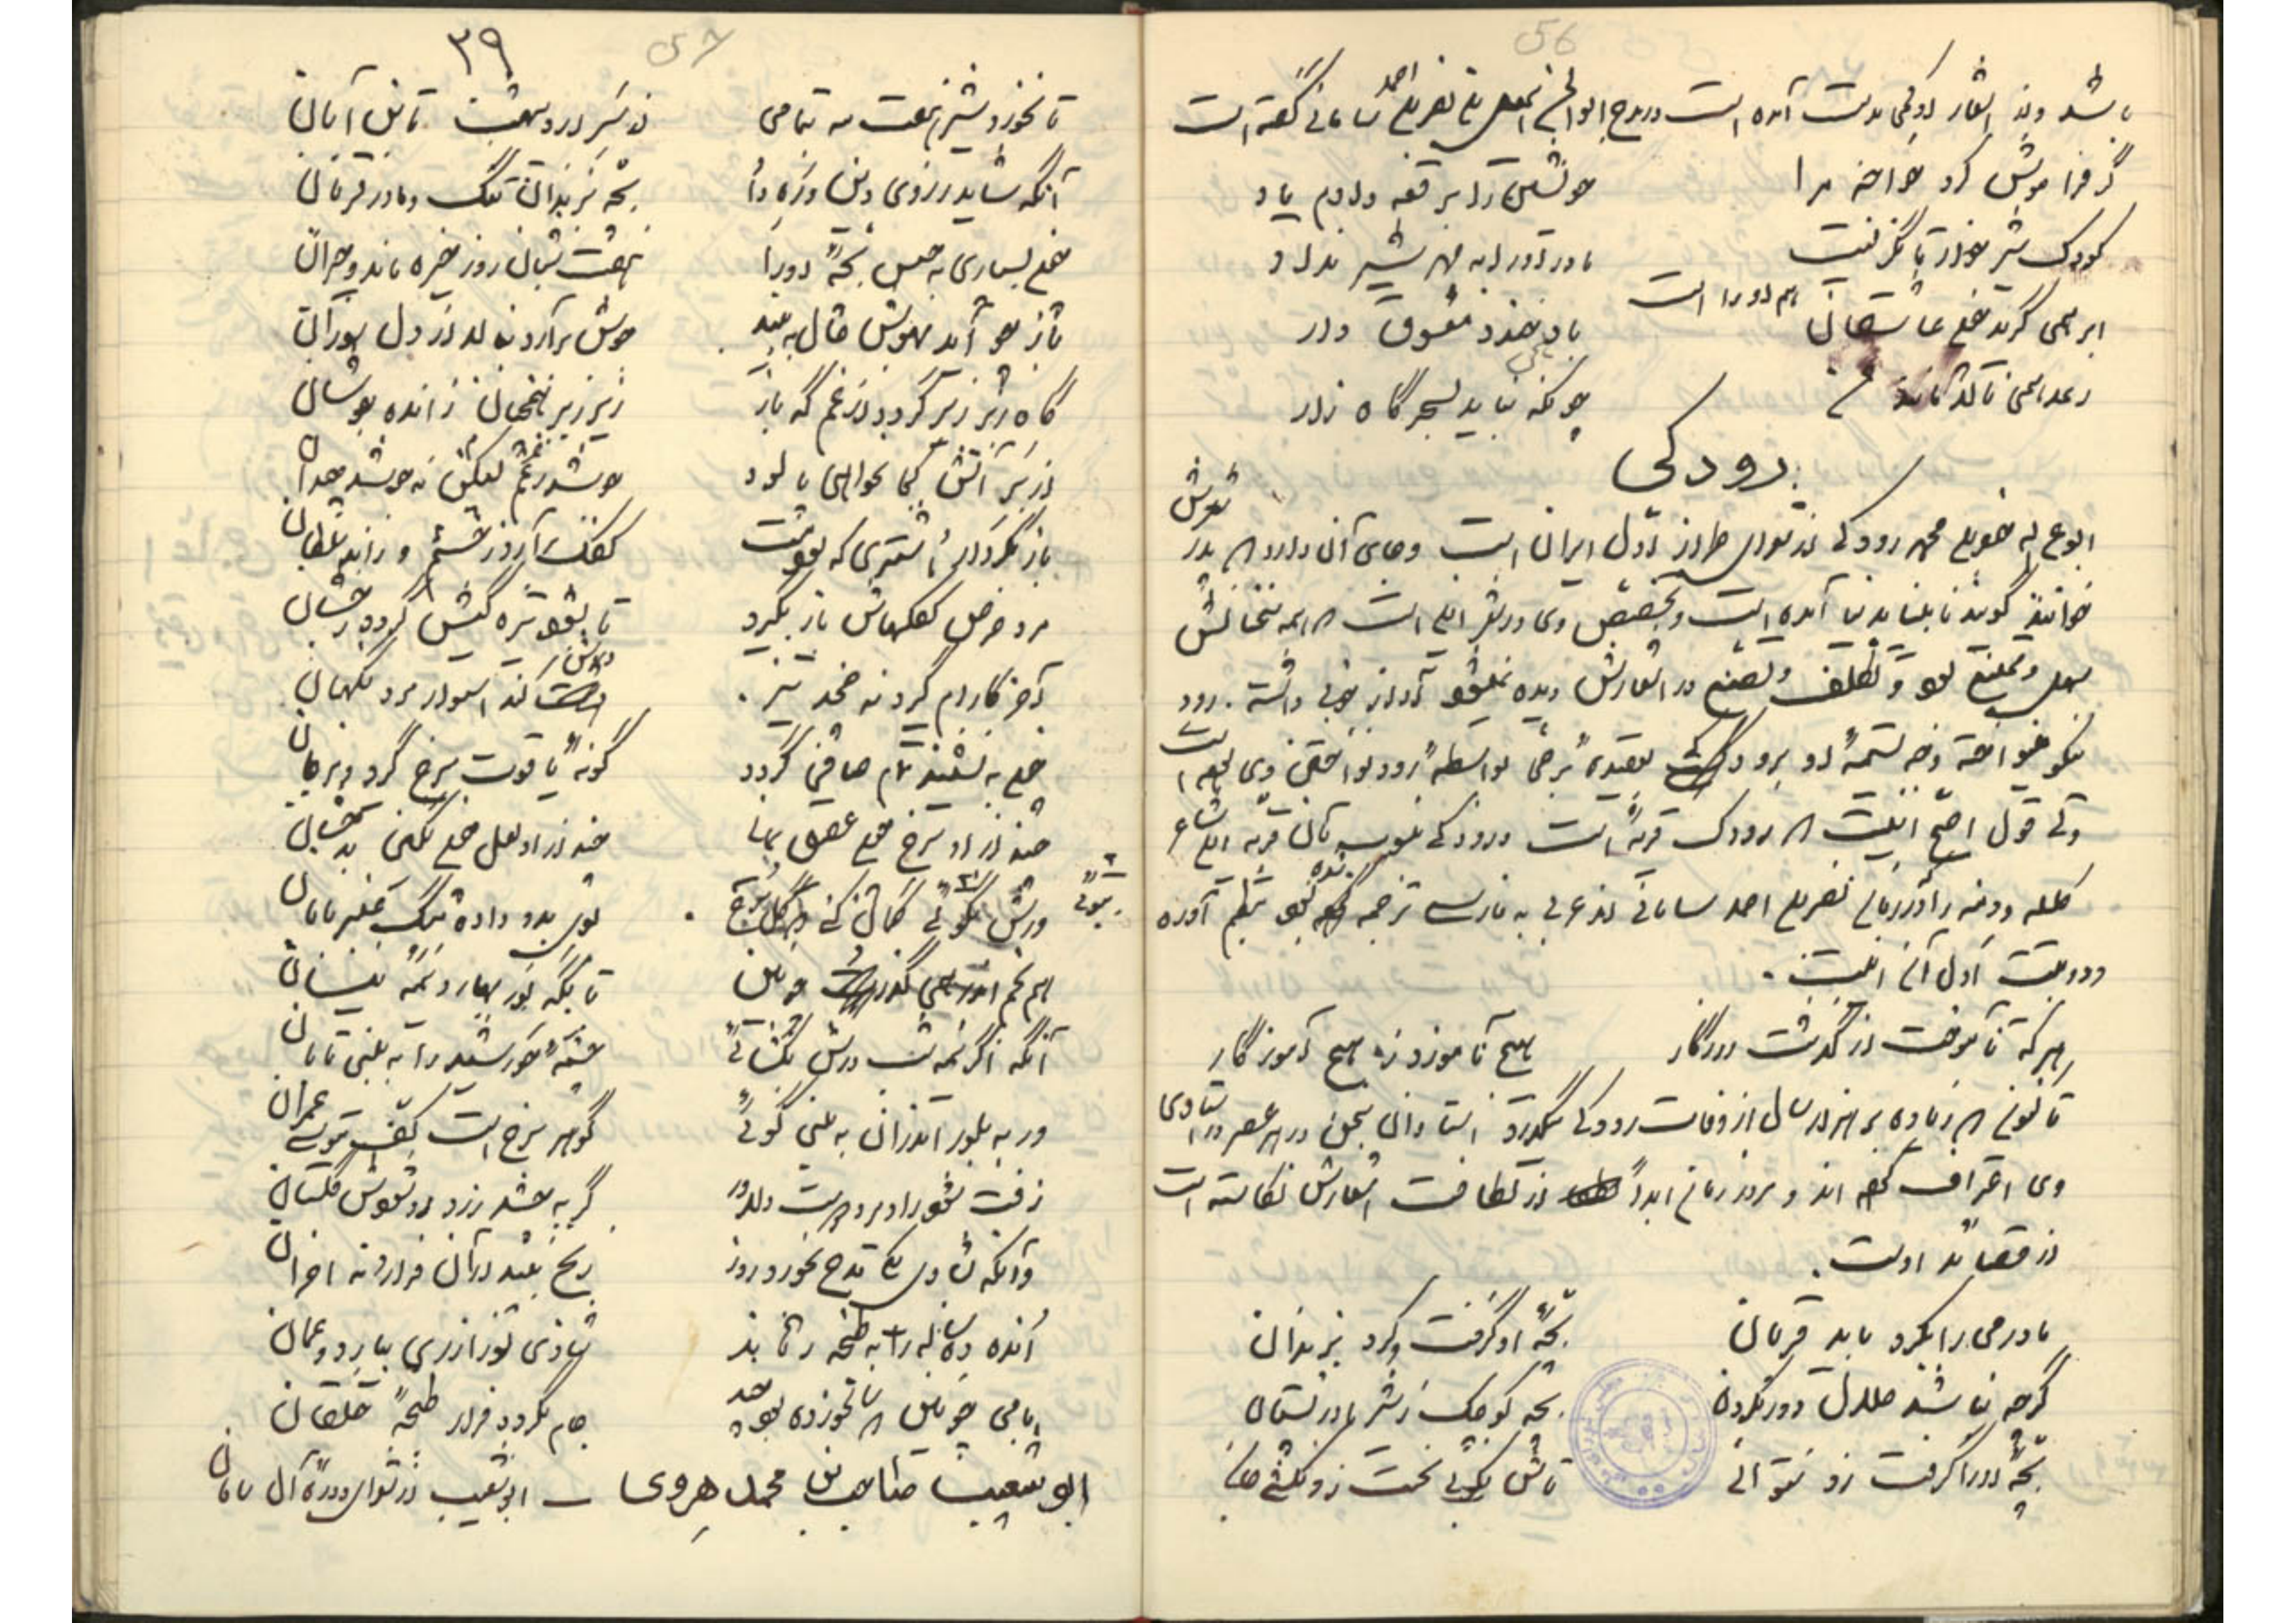 56
باشد و از اشعار او کمی بدست آمده است در مدح ابوالحسن نصر بن احمد سامانی گفته است
گر فراموش کرد خواجه مرا    خویشتن را برقعه دادم یاد
کودک شیر خوار تا نگریست    مادر او را به مهر شیر نداد
ابر همی گرید چون عاشقان    باغ همی خندد معشوق وار
رعد همی نالد مانند    چونکه بنالم بسحرگاه زار
رودکی
ابو عبدالله جعفر بن محمد رودکی از شعرای طراز اول ایران است و جای آن دارد که پدر شعرش
خوانند گویند نابینا بدنیا آمده است و تخصص وی در شعر این است که همه سخنانش
سهل و ممتنع بود و تکلف و تصنع در اشعارش دیده نمیشود آواز خوبی داشته . رود
نیکو مینواخته وجه تسمیه او برودکی بعقیده برخی بواسطه رود نواختن وی بوده است
ولی قول اصح اینست که رودک قریه است و رودکی منسوب بآن قریه این شاعر
کلیله و دمنه را در زمان نصر بن احمد سامانی از عربی به فارسی ترجمه شده بود بنظم آورده
و دو بیت اول آن اینست .
هر که نآموخت از گذشت روزگار    هیچ ناموزد ز هیچ آموزگار
تاکنون که زیاده بر هزار سال از وفات رودکی میگذرد استادان سخن در هر عصر باستادی
وی اعتراف کرده اند و مرور زمان ابداً از لطافت اشعارش نکاسته است
از قصائد اوست .
مادر می را بکرد باید قربان    بچه او گرفت و کرد بزندان
گرچه نباشد حلال دور بکردن    بچه کوچک ز شیر مادر و پستان
بچه او را گرفت زو نتوانی    تاش نکوبی نخست زو نکشی جان
۳۹
57
تا نخورد شیر هفت مه بتمامی    از سر اردیبهشت تا بن آبان
آنگه شاید ز روی دین و ره داد    بچه بزندان تنگ و مادر قربان
چون بسپاری به حبس بچه او را    هفت شبان روز خیره ماند و حیران
باز چو آید بهوش و حال به بیند    جوش برآرد بنالد از دل سوزان
گاه زبر زیر گردد از غم و گه باز    زیر زبر همچنان ز انده جوشان
زر بر آتش کجا بخواهی پالود    جوشد لیکن ز غم نجوشد چندان
باز بکردار اشتری که بود مست    کفک برآرد ز خشم و راند سلطان
مرد حرس کفکهاش پاک بگیرد    تا بشود تیره گیش گردد رخشان
آخر کارام گیرد و نچخد تیز    درش کند استوار مرد نگهبان
چون به نشیند تمام و صافی گردد    گونه یاقوت سرخ گیرد و مرجان
چند از او سرخ چون عقیق یمانی    چند از او لعل چون نگین بدخشان
ورش ببوئی گمان کنی که گل سرخ    بوی بدو داده مشک و عنبر با بان
هم بخم اندر همی گذارد چونین    تا بگه نوبهار و نیمه نیسان
آنگه اگر نیمه شب درش بگشائی    چشمه خورشید را به بینی تابان
ور به بلور اندران به بینی گوئی    گوهر سرخ است بکف موسی عمران
زفت شود راد و مرد سست دلاور    گر بچشد زو و روی زرد گلستان
وآنکه بشادی یکی قدح بخورد زوی    رنج نبیند از آن فراز و نه احزان
انده ده ساله را به طنجه رماند    شادی نو را ز ری بیارد و عمان
با می چونین که سالخورده بود چند    جام بگردد فراز طنجه خلقان
ابو شعیب صالح بن محمد هروی - ابو شعیب از شعرای دوره آل سامان